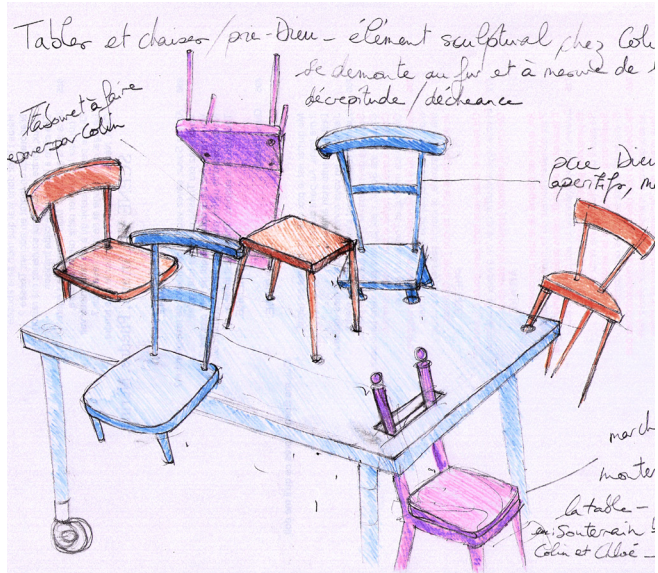 Tables et chaises / prie-Dieu - élément sculptural chez Coli
se demonte au fur et à mesure de l
décrépitude / déchéance
Tabouret à faire
par Colin
prie Dieu
aperitifs, m
march
monter
la table -
en souterrain
Colin et Chloé -